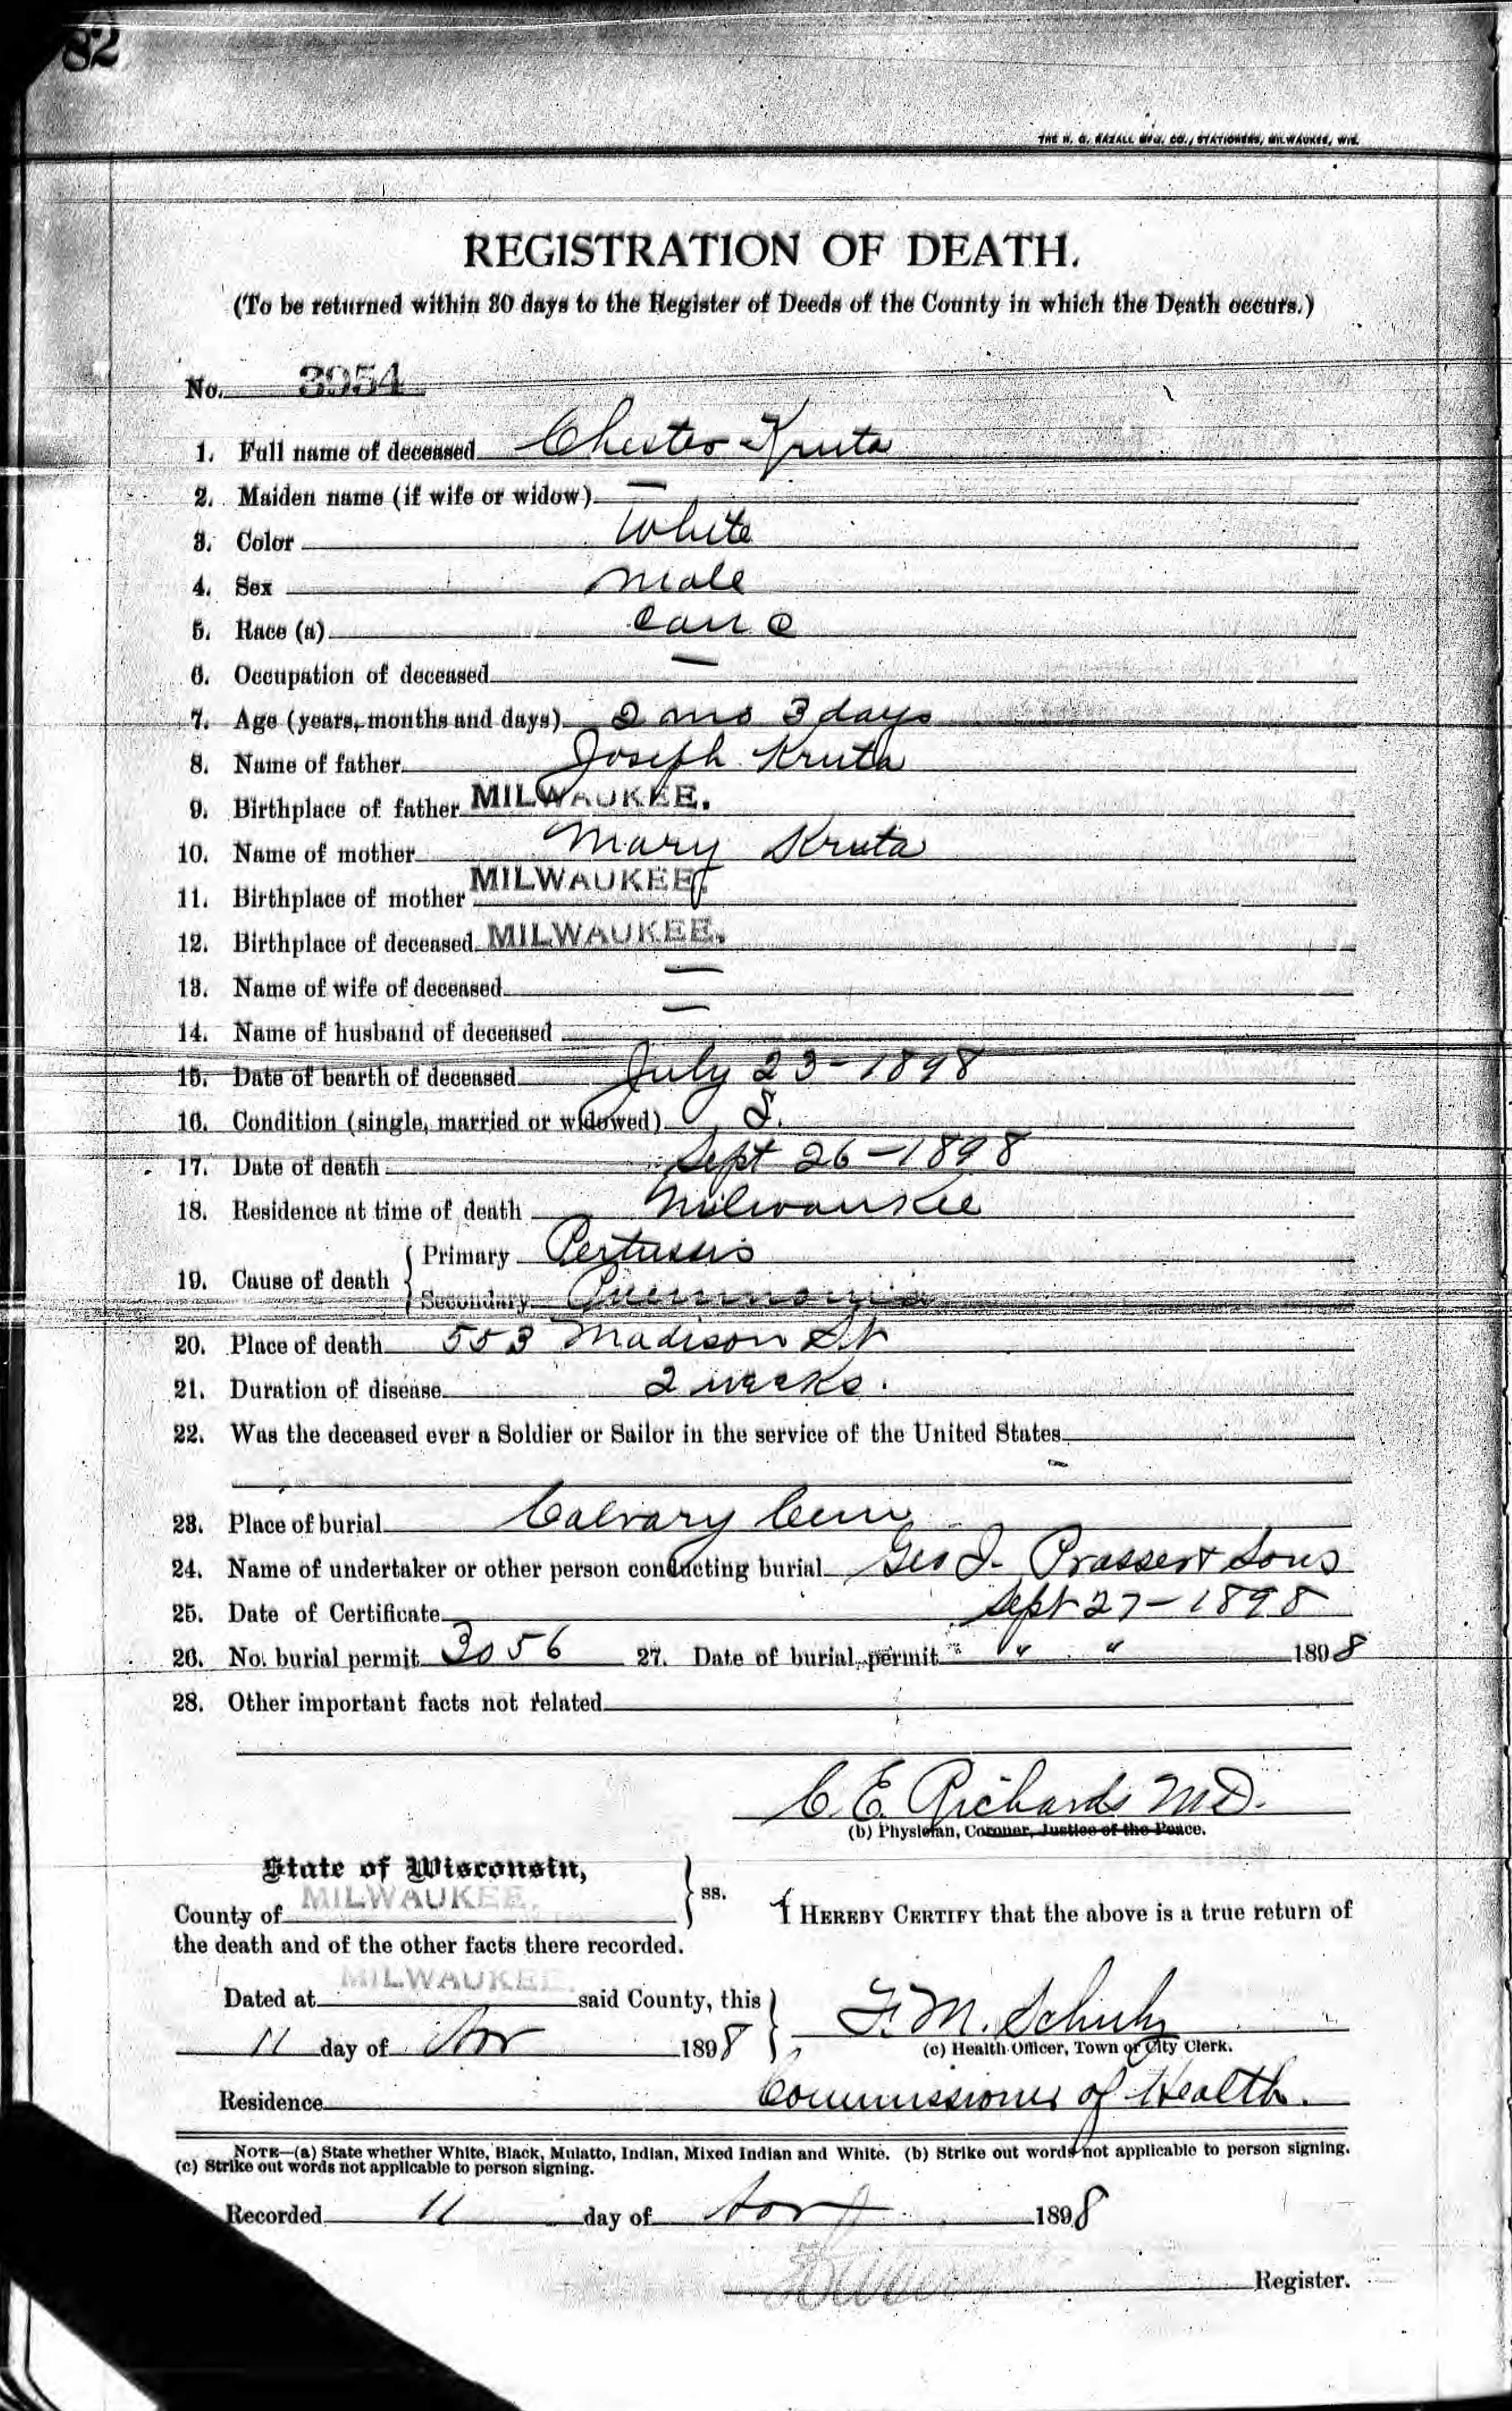 82
THE H. G. RAZALL MFG. CO., STATIONERS, MILWAUKEE, WIS.
REGISTRATION OF DEATH.
(To be returned within 30 days to the Register of Deeds of the County in which the Death occurs.)
No. 3954
1. Full name of deceased Chester Kruta
2. Maiden name (if wife or widow) —
3. Color White
4. Sex Male
5. Race (a) Cauc
6. Occupation of deceased —
7. Age (years, months and days) 2 mo 3 days
8. Name of father Joseph Kruta
9. Birthplace of father MILWAUKEE.
10. Name of mother Mary Kruta
11. Birthplace of mother MILWAUKEE.
12. Birthplace of deceased MILWAUKEE.
13. Name of wife of deceased —
14. Name of husband of deceased —
15. Date of bearth of deceased July 23 - 1898
16. Condition (single, married or widowed) S.
17. Date of death Sept 26 - 1898
18. Residence at time of death Milwaukee
19. Cause of death { Primary Pertussis
Secondary Pneumonia
20. Place of death 553 Madison St
21. Duration of disease 2 weeks.
22. Was the deceased ever a Soldier or Sailor in the service of the United States
—
23. Place of burial Calvary Cem
24. Name of undertaker or other person conducting burial Geo J. Prasser & Sons
25. Date of Certificate Sept 27 - 1898
26. No. burial permit 3056 27. Date of burial permit " " 1898
28. Other important facts not related
C. E. Richards M.D.
(b) Physician, Coroner, Justice of the Peace.
State of Wisconsin,
County of MILWAUKEE. } ss. I HEREBY CERTIFY that the above is a true return of
the death and of the other facts there recorded.
Dated at MILWAUKEE. said County, this
11 day of Nov 1898 } F. M. Schulz
(c) Health Officer, Town or City Clerk.
Residence Commissioner of Health.
NOTE—(a) State whether White, Black, Mulatto, Indian, Mixed Indian and White. (b) Strike out words not applicable to person signing.
(c) Strike out words not applicable to person signing.
Recorded 11 day of Nov 1898
Register.